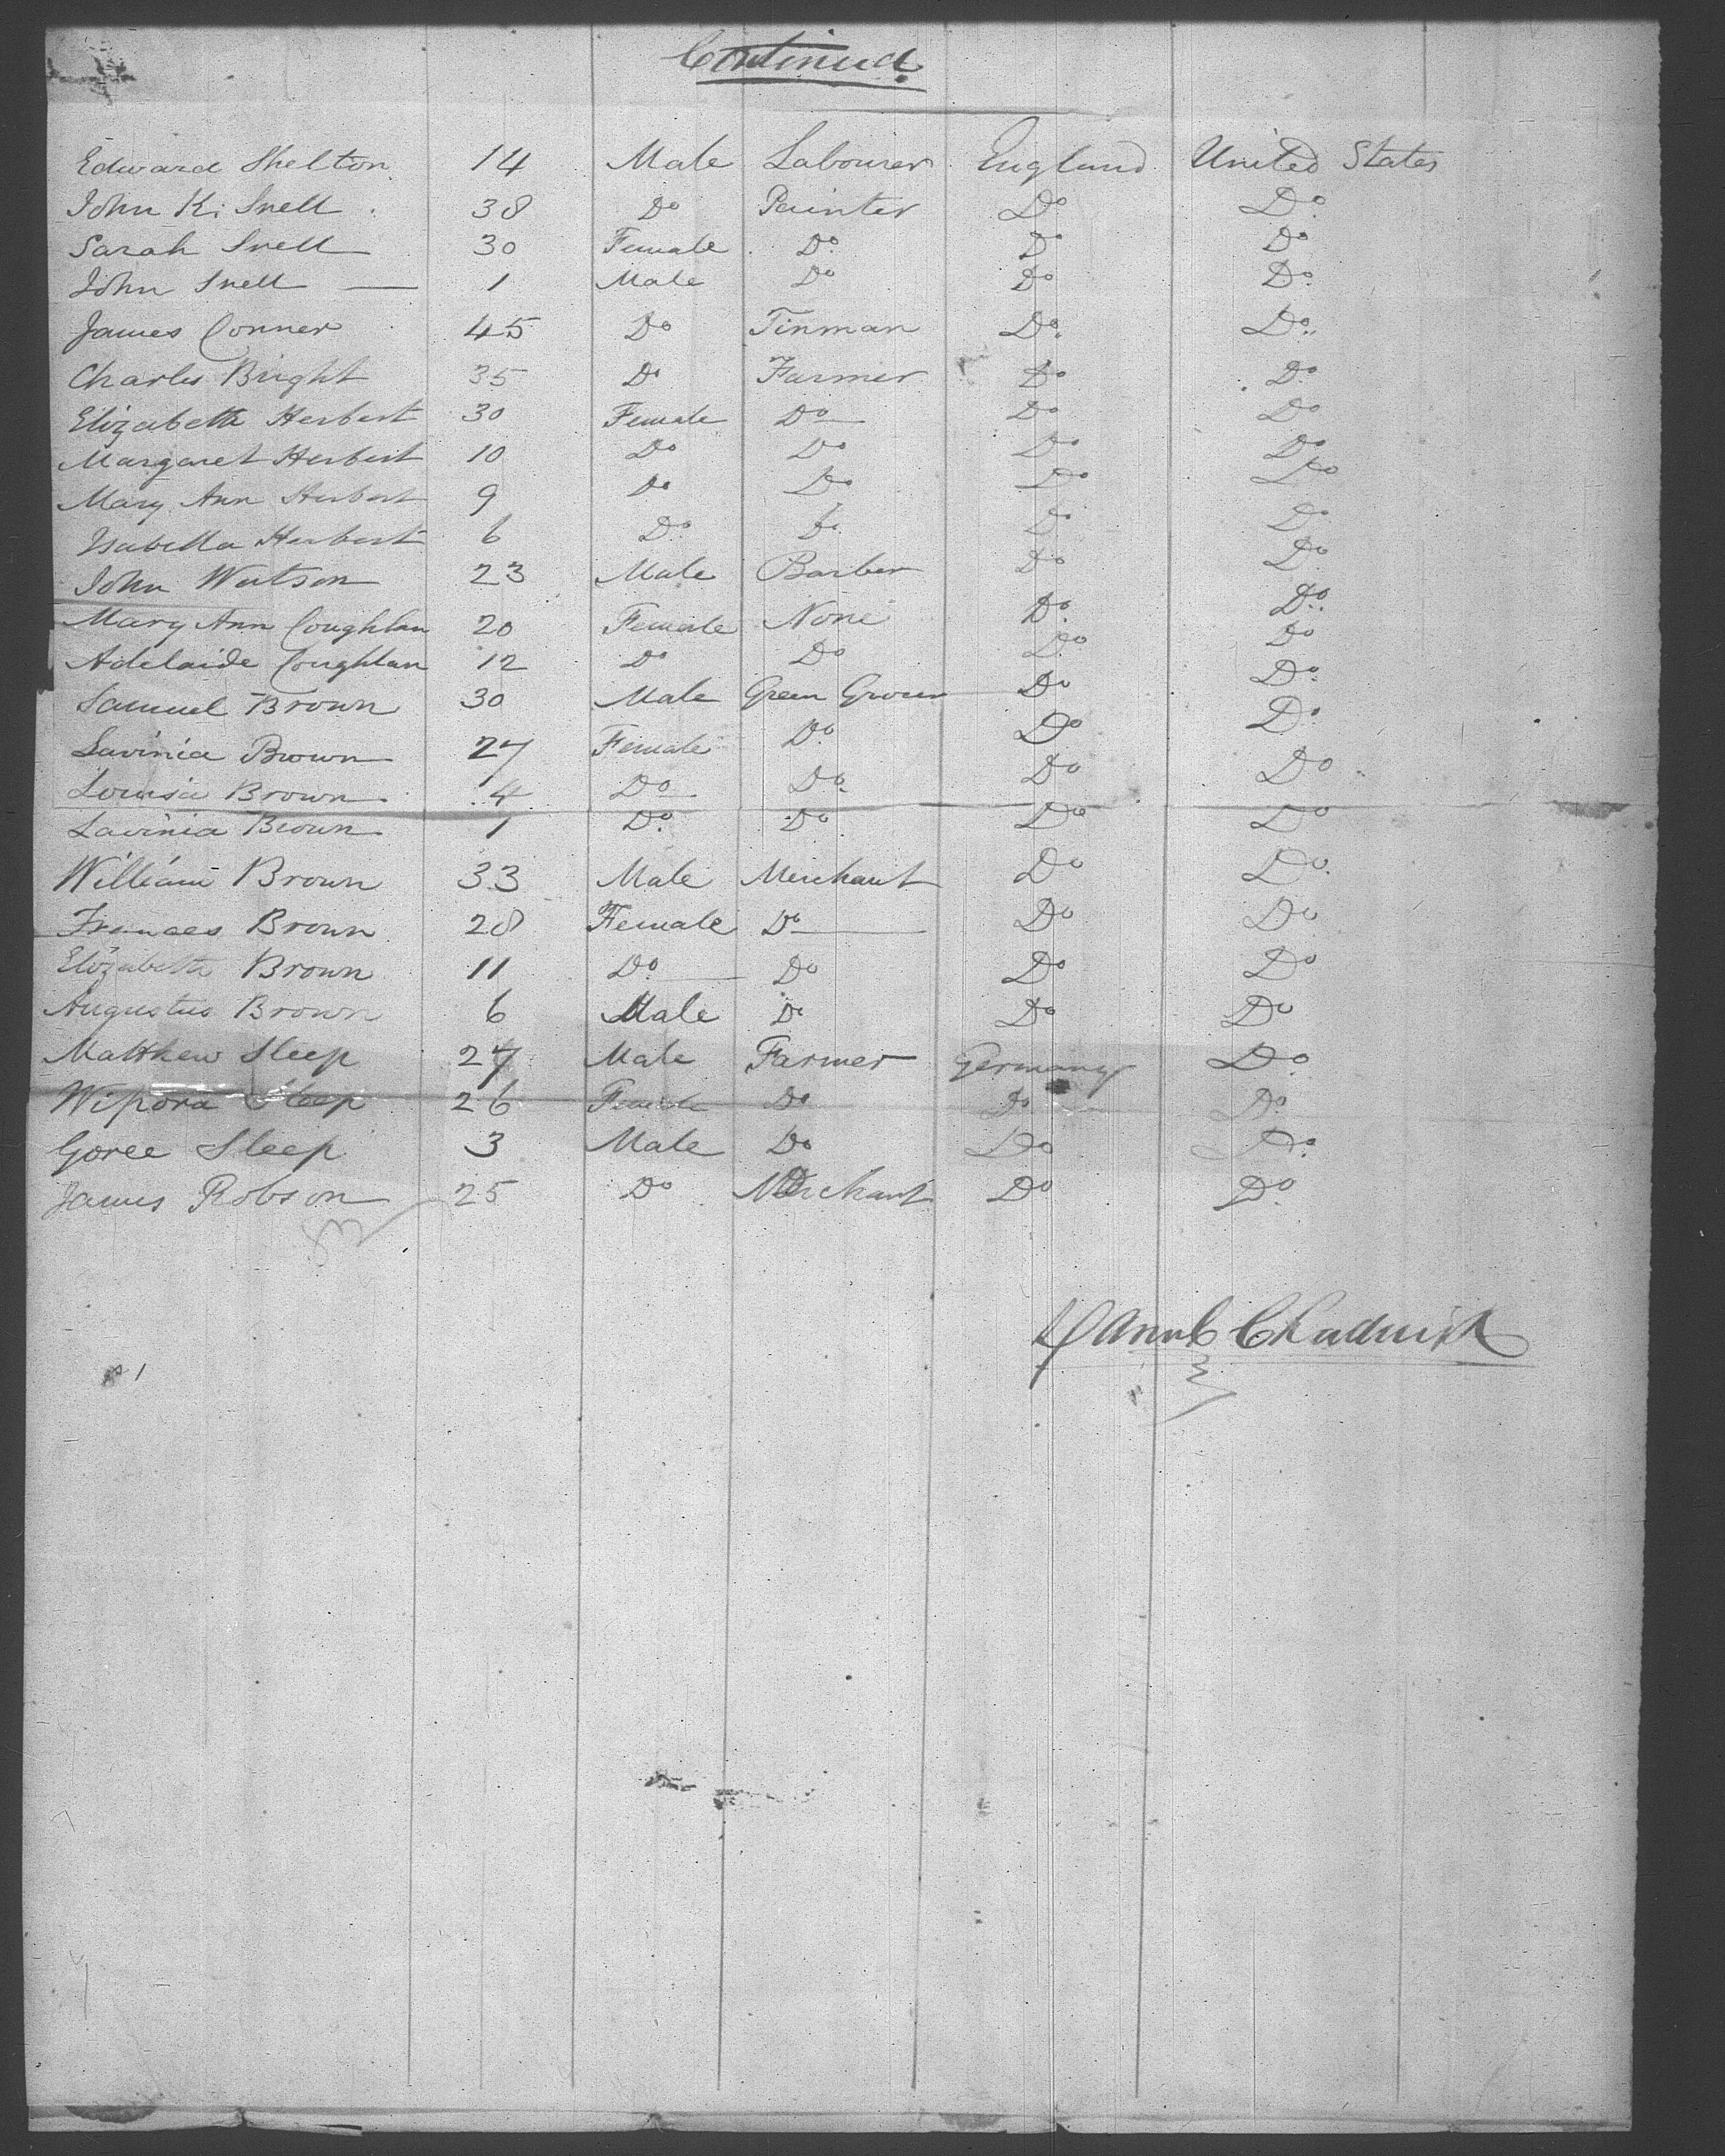 Continued
Edward Shelton 14 Male Labourer England United States
John K. Snell 38 Do Painter Do Do
Sarah Snell 30 Female Do Do Do
John Snell — 1 Male Do Do Do
James Conner 45 Do Tinman Do Do
Charles Bright 35 Do Farmer Do Do
Elizabeth Herbert 30 Female Do Do Do
Margaret Herbert 10 Do Do Do Do
Mary Ann Herbert 9 Do Do Do Do
Isabella Herbert 6 Do Do Do Do
John Watson 23 Male Barber Do Do
Mary Ann Coughlan 20 Female None Do Do
Adelaide Coughlan 12 Do Do Do Do
Samuel Brown 30 Male Green Grocer Do Do
Lavinia Brown 27 Female Do Do Do
Louisa Brown 4 Do Do Do Do
Lavinia Brown 1 Do Do Do Do
William Brown 33 Male Merchant Do Do
Frances Brown 28 Female Do Do Do
Elizabeth Brown 11 Do Do Do Do
Augustus Brown 6 Male Do Do Do
Matthew Sleep 27 Male Farmer Germany Do
Wipora Sleep 26 Female Do Do Do
Goree Sleep 3 Male Do Do Do
James Robson 25 Do Merchant Do Do
Chadwick